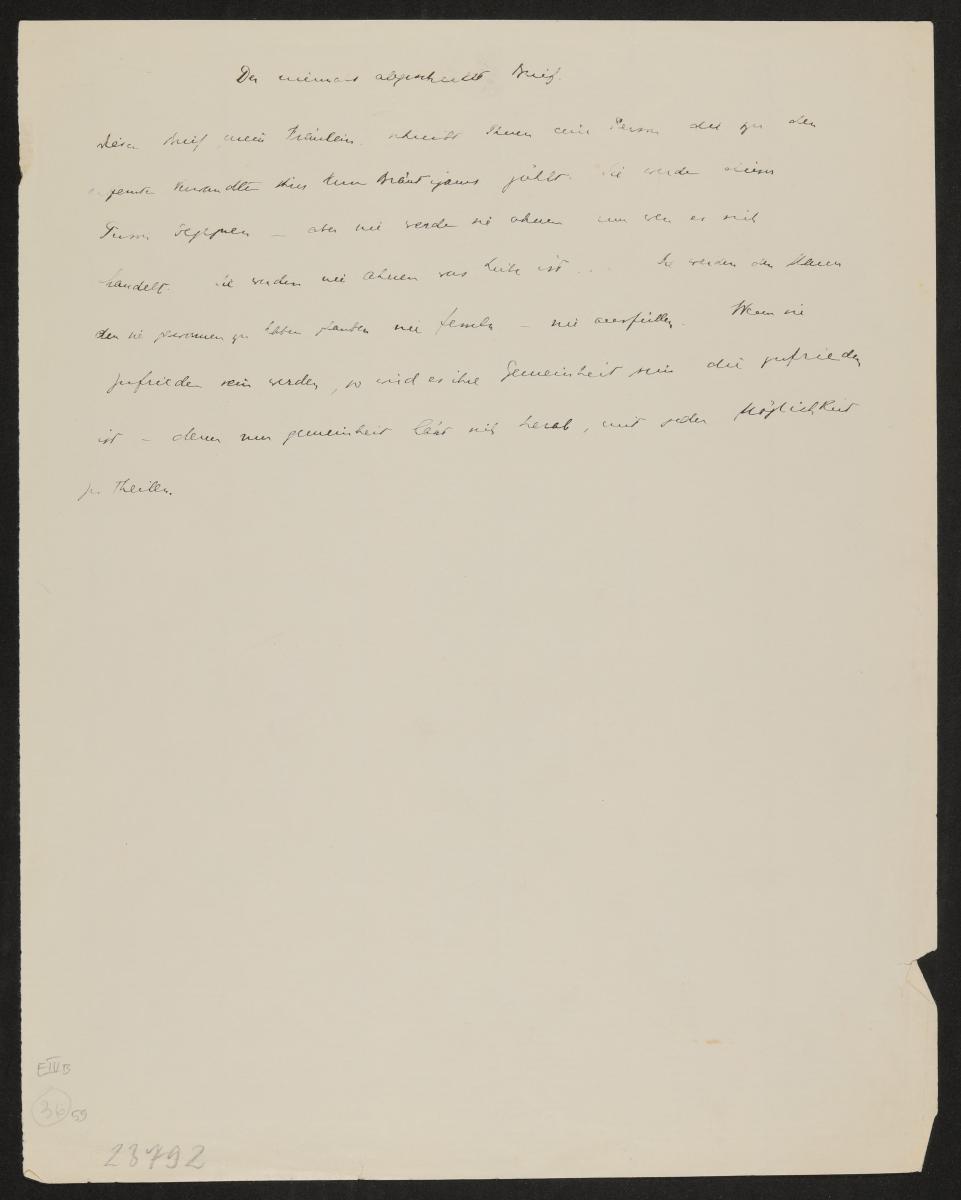 Der niemals abgeschickte Brief.
Dieser Brief, mein Fräulein, schreibt Ihnen eine Person die zu den
Verwandten Ihres Herrn Bräutigams zählt. Sie werden dieser
Person begegnen – aber nie werden sie ahnen um wen es sich
handelt. Sie werden nie ahnen was Liebe ist ... Sie werden den Mann
den sie gewonnen zu haben glauben nie fesseln – nie ausfüllen. Wenn sie
zufrieden sein werden, so wird es ihre Gemeinheit sein die zufrieden
ist – denn nur gemeinheit lässt sich herab, mit jeder Möglichkeit
zu theilen.
E IV B
36 59
23792